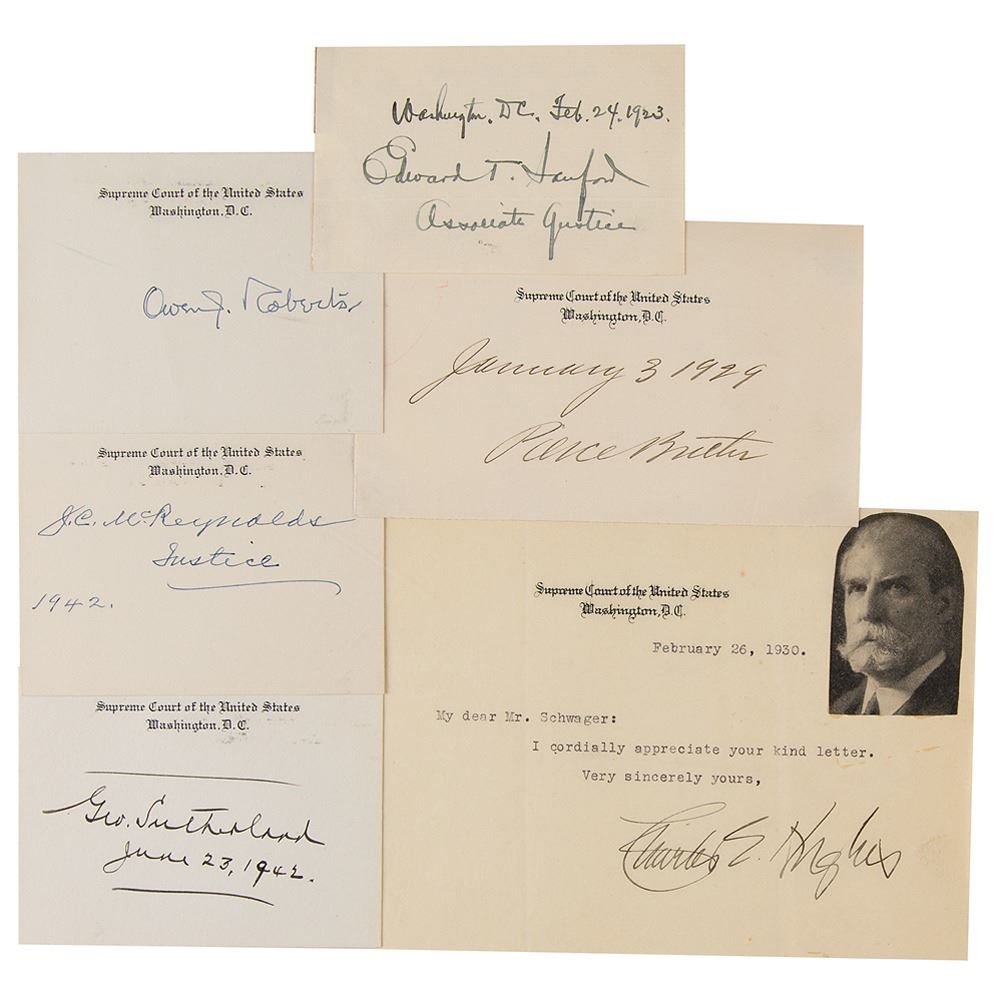 Washington, D.C. Feb. 24. 1923.
Edward T. Sanford
Associate Justice
Supreme Court of the United States
Washington, D. C.
Owen J. Roberts
Supreme Court of the United States
Washington, D. C.
January 3 1929
Pierce Butler
Supreme Court of the United States
Washington, D. C.
J. C. McReynolds
Justice
1942.
Supreme Court of the United States
Washington, D. C.
Geo. Sutherland
June 23, 1942.
Supreme Court of the United States
Washington, D. C.
February 26, 1930.
My dear Mr. Schwager:
I cordially appreciate your kind letter.
Very sincerely yours,
Charles E. Hughes